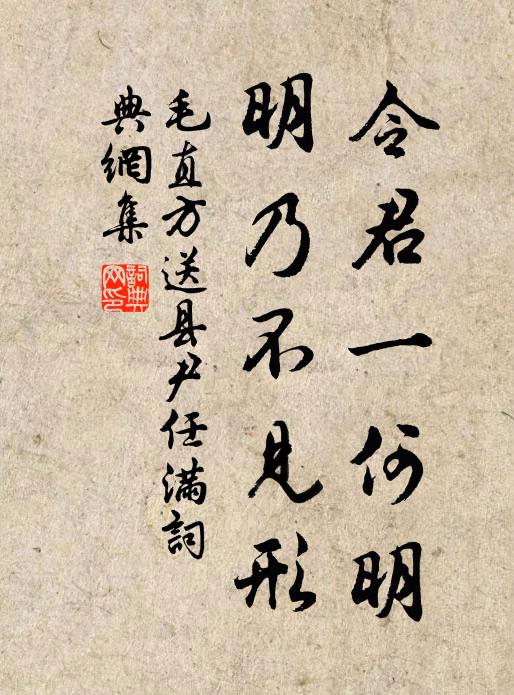 令君一何明
明乃不见形
毛直方送县尹任满詞
典網集
詞典
网印